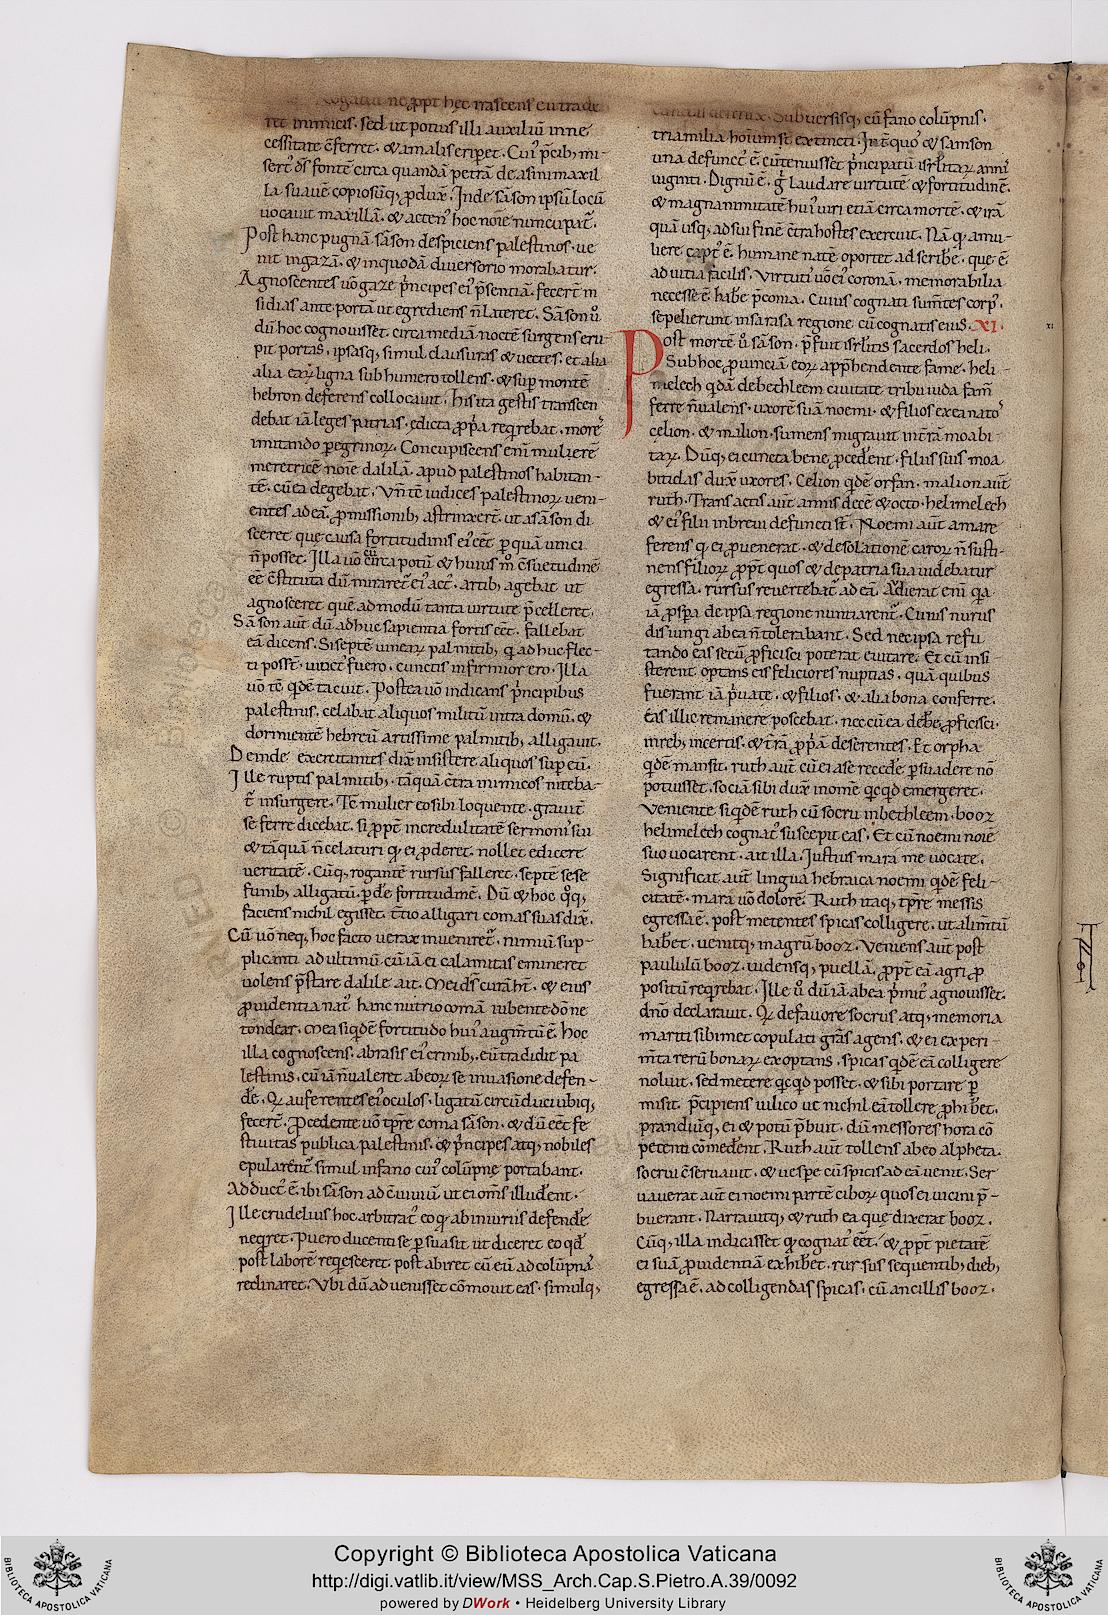 rogatiū ne ꝓpt hęc nascens eū trade
ret inimicis. sed ut potius illi auxiliū in ne
cessitate c̄ferret. & a malis eriꝑet. Cui' p̄cib; mi-
sert' d̄s fontē circa quandā petrā de asini maxil
la suauē copiosūq; ꝓdux̄. Inde sāson ipsū locū
uocauit maxillā. & acten' hoc noīe nuncupat̄.
Post hanc pugnā sāson despiciens palestinos. ue
nit in gazā. & in quodā diuersorio morabatur.
Agnoscentes uō gazę p̄ncipes ei' p̄sentiā. fecert̄ in
sidias ante portā ut egrediens n̄ lateret. Sāson ů
dū hoc cognouisset. circa mediā noctē surgens eru
pit portas. ipsasq; simul clausuras & uectes. et alia
alia eaꝝ ligna sub humero tollens. & suꝑ montē
hebron deferens collocauit. his ita gestis transcen
debat iā leges patrias. & dicta ꝓp̄a reqͥrebat. more
imitando ꝑegrinoꝝ. Concupiscens enī mulierē
meretricē noīe dalilā. apud palestinos habitan-
tē. cū ea degebat. Vn̄ tē iudices palestinoꝝ ueni-
entes ad eā. ꝓmissionib; astrinxert̄. ut a sāson di
sceret quę causa fortitudinis ei' eēt ꝑ quā uinci
n̄ posset. Illa uō cū īta potū & huius m̊ c̄suetudinē
eē c̄stituta dū miraret̄ ei' act'. artib; agebat ut
agnosceret quē ad modū tanta uirtute p̄celleret.
Sāson aut̄ dū adhuc sapientia fortis eēt. fallebat
eā dicens. Si septē uineaꝝ palmitib; qͥ adhuc flec-
ti possēt. uinct' fuero. cunctis infirmior ero. Illa
uō tē qͥdē tacuit. Postea uō indicans p̄ncipibus
palestinis. celabat aliquos militū intra domū. &
dormientē hebreū artissime palmitib; alligauit.
Deinde exercitantes dix̄ insistere aliquos suꝑ eū.
Ille ruptis palmitib; tāquā c̄tra inimicos niteba-
t̄ insurgere. Tē mulier eo sibi loquente. grauit̄
se ferre dicebat. si ꝓpt̄ incredulitatē sermoni' sui
& tāquā n̄ celaturi qͥ ei ꝓderet. nollet edicere
ueritatē. Cūq; rogantē rursus falleret. septē se se
funib; alligatū. ꝑde fortitudinē. Dū & hoc qͦq;
faciens nichil egisset. t̄tio alligari comas suas dix̄.
Cū uō neq; hoc facto uerax inueniret̄. nimiū sup-
plicanti ad ultimū cū iā ei calamitas emineret
uolens p̄stare dalile ait. Mei d̄s curā h̄t. & eius
ꝓuidentia nat' hanc nutrio comā iubente dō ne
tondear. mea siqͥdē fortitudo hui' augm̄tū ē. hoc
illa cognoscens. abrasis ei' crinib; eū tradidit pa
lestinis. cū iā n̄ ualeret ab eoꝝ se inuasione defen-
de. Qͥ auferentes ei' oculos. ligatū circūduci ubiq;
fecert̄. Procedente uō tp̄re coma sāson. & dū eēt fe
stiuitas publica palestinis. & p̄ncipes atq; nobiles
epularent̄ simul in fano cui' colūpnę portabant.
Adduct' ē. ibi sāson ad c̄uiuiū. ut ei om̄s illuderent.
Ille crudelius hoc arbitrat' eo qͥ ab iniuriis defende
neqret. Puero ducenti se ꝑsuasit ut diceret eo qd̄
post laborē reqͥesceret. post abiret cū eū ad colūpnā
reclinaret. Vbi dū aduenisset c̄mouit eas. simulq;
cunctis deiectis. Subuersisq; cū fano colūpnis.
tria milia hōium st̄ extincti. In t̄ quo' & samson
una defunct' ē. cū tenuisset p̄ncipatū isrl̄itaꝝ annis
uiginti. Dignū ē. ḡ laudare uirtutē & fortitudinē.
& magnanimitatē hui' uiri etiā circa mortē. & irā
quā usq; ad sui finē c̄tra hostes exercuit. Nā qͥ a mu-
liere capt' ē. humane natē oportet adscribe. que ē
ad uitia facilis. Virtuti uō ei' coronā. memorabilia
necesse ē. habe p̄conia. Cuius cognati sum̄tes corp'
sepelierunt in sarasa regione cū cognatis eius. XI.
Post mortē ů sāson. p̄fuit isrl̄itis sacerdos heli.
Sub hoc ꝓuinciā eoꝝ app̄hendente fame. heli-
melech qͥdā de bethleem ciuitate tribu iuda famē
ferre n̄ ualens. uxorē suā noemi. & filios ex ea nato'
celion. & malion. sumens migrauit in t̄rā moabi-
taꝝ. Dūq; ei cuncta bene ꝓcederent. filiis suis moa
bitidas dux̄ uxores. Celion qͥdē orfan. malion aut̄
ruth. Transactis aut̄ annis decē & octo. helimelech
& ei' filii in breui defuncti st̄. Noemi aut̄ amare
ferens qͥ ei ꝓuenerat. & desolationē caroꝝ n̄ susti-
nens filioꝝ ꝓpt quos & de patria sua uidebatur
egressa. rursus reuertebat̄ ad eā. Audierat enī qͥa
iā ꝓspa de ipsa regione nuntiarent̄. Cuius nurus
disiungi ab ea n̄ tolerabant. Sed nec ipsa refu
tando eas secū ꝓficisci poterat euitare. Et cū insi-
sterent optans eis feliciores nuptias. quā quibus
fuerant iā p̄uate. & filios. & alia bona conferre.
Eas illic remanere poscebat. nec cū ea debe ꝓficisci.
in reb; incertis. & t̄rā ꝓp̄ā deserentes. Et orpha
qͥdē mansit. ruth aut̄ cū ei a se recede ꝑsuadere nō
potuisset. sociā sibi dux̄ in omē qͥcqͥd emergeret.
Veniente siqͥdē ruth cū socru in bethleem. booz
helimelech cognat' suscepit eas. Et cū noemi noīe
suo uocarent. ait illa. Iustius mara me uocate.
Significat aut̄ lingua hebraica noemi qͥdē feli-
citatē. mara uō dolorē. Ruth itaq; tp̄re messis
egressa ē. post metentes spicas colligere. ut alim̄tū
haberet. uenitq; in agrū booz. Veniens aut̄ post
paululū booz. uidensq; puellā. ꝓpt̄ eā agri ꝓ
positū reqͥrebat. Ille ů dū iā ab ea p̄mit' agnouisset.
dn̄o declarauit. Qͥ de fauore socrus atq; memoria
mariti sibimet copulati grās agens. & ei experi-
m̄ta rerū bonaꝝ exoptans. spicas qͥdē eā colligere
noluit. sed metere qͥcqͥd posset. & sibi portare ꝑ
misit. p̄cipiens uilico ut nichil eā tollere ꝓhiberet.
prandiūq; ei & potū p̄buit. dū messores hora cō
petenti cōmederent. Ruth aut̄ tollens ab eo alpheta.
socrui c̄seruauit. & uespe cū spicis ad eā uenit. Ser
uauerat aut̄ ei noemi partē ciboꝝ quos ei uicini p̄-
buerant. Narrauitq; & ruth ea quę dixerat booz.
Cūq; illa indicasset qͥ cognat' eēt. & ꝓpt̄ pietatē
ei suā ꝓuidentiā exhiberet. rursus sequentib; dieb;
egressa ē. ad colligendas spicas. cū ancillis booz.
xi
Copyright © Biblioteca Apostolica Vaticana
http://digi.vatlib.it/view/MSS_Arch.Cap.S.Pietro.A.39/0092
powered by DWork • Heidelberg University Library
BIBLIOTECA APOSTOLICA VATICANA
BIBLIOTECA APOSTOLICA VATICANA